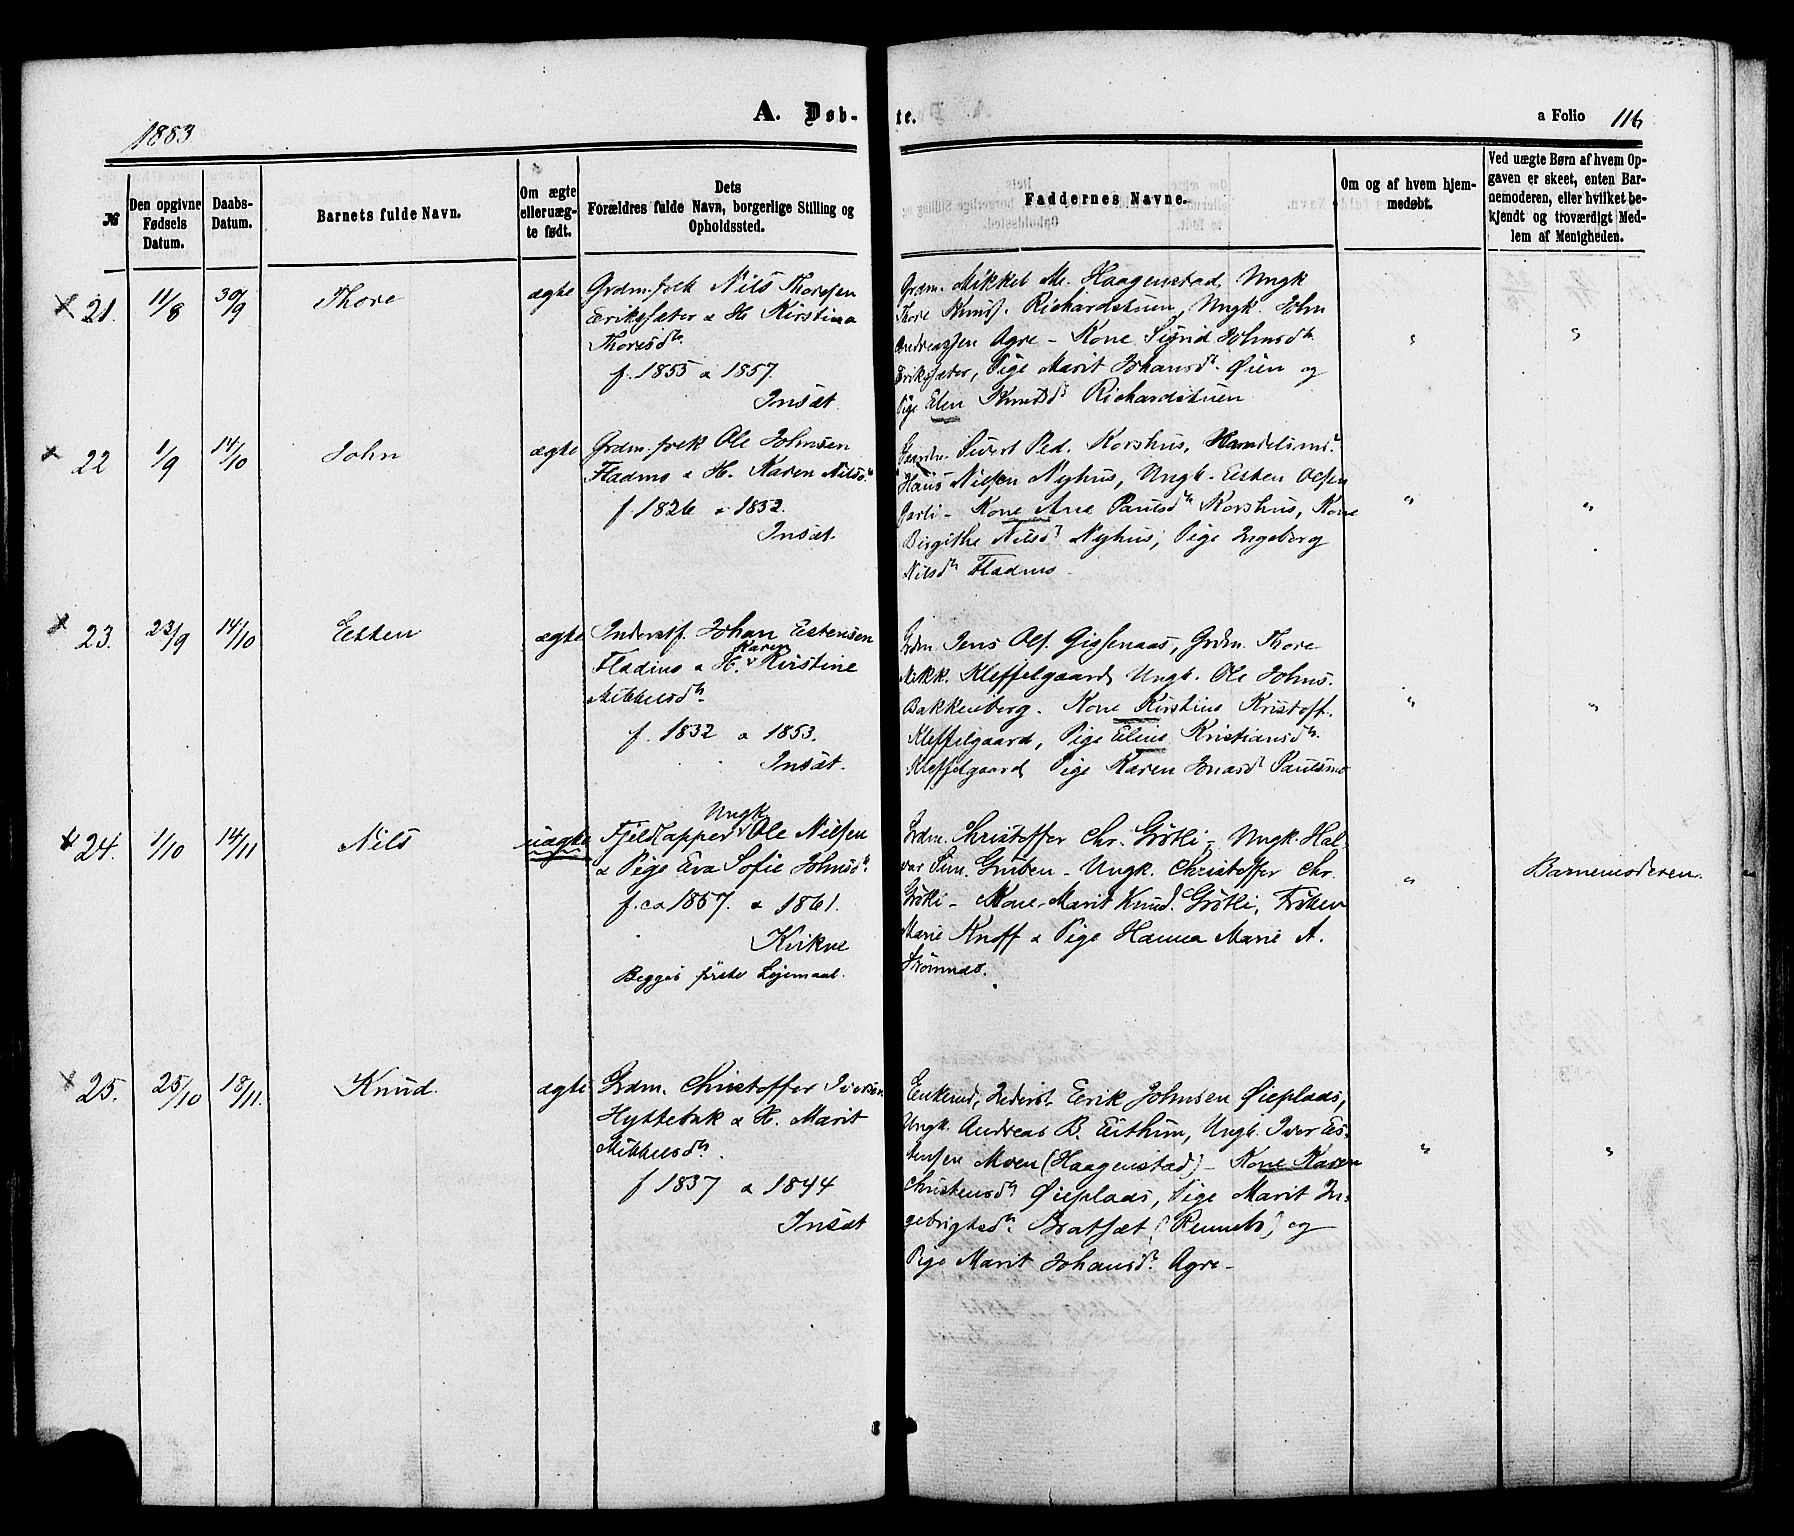 1883
A. Døb-
te.
a Folio 116
№
Den opgivne Fødsels Datum.
Daabs-Datum.
Barnets fulde Navn.
Om ægte eller uæg-te født.
Dets
Forældres fulde Navn, borgerlige Stilling og Opholdssted.
Faddernes Navne.
Om og af hvem hjem-medøbt.
Ved uægte Børn af hvem Op-gaven er skeet, enten Bar-nemoderen, eller hvilket be-kjendt og troværdigt Med-lem af Menigheden.
21. 11/8 30/9 Thore ægte
Grdm.folk Nils Thoresen
Eriksæter & H. Kirstine
Thoresdtr
f. 1855 & 1857
Insæt.
Grdm. Mikkel M. Haagenstad, Ungk
Thore Knuds. Richardstuen, Ungk. John
Andreassen Agre - Kone Sigrid Johnsdtr
Eriksæter, Pige Marit Johansdtr Øien og
Pige Elen Knudsdtr Richardstuen
" "
22 1/9 14/10 John ægte
Grdm.folk Ole Johnsen
Fladmo & H. Karen Nilsdtr
f. 1826 & 1852.
Insæt.
Gaardm. Sivert Ped. Korshus, Handelsmd.
Hans Nilsen Nyhus, Ungk. Esten Olsen
- Kone Ane Paulsdtr Korshus, Kone
Birgithe Nilsdtr Nyhus, Pige Ingeborg
Nilsdtr Fladmo
" "
23. 23/9 14/10 Esten ægte
Inderstf. Johan Estensen
Fladmo & H. Karen Kirstine
Mikkelsdtr
f. 1832 & 1853.
Insæt.
Grdm. Jens Ols. Gissenaas, Grdm. Thore
Mikk. Kleffelgaard, Ungk. Ole Johns.
Bakkeieberg. Kone Kirstine Kristoff.
Kleffelgaard, Pige Eline Kristiansdtr.
Kleffelgaard Pige Karen Jonasdtr Paulsmo
" "
24. 1/10 14/11 Nils uægte
Fjeldlapper Ungk Ole Nilsen
& Pige Eva Sofie Johnsdtr
f. ca 1857. & 1861.
Kvikne
Begges første Lejemaal.
Grdm. Christoffer Chr. Grøtli - Ungk. Hal-
vor Sim. Gruben - Ungk. Christoffer Chr.
Grøtli - Kone Marit Knud. Grøtli, Frøken
Marie Knoff & Pige Hanna Marie A.
Strømmes.
"
Barnemoderen.
25. 25/10 18/11. Knud ægte
Grdm. Christoffer Iversen
Hyttebak & H. Marit
Mikkelsdtr.
f 1837 & 1844
Insæt
Enkemd, Inderst. Erik Johnsen Øieplads,
Ungk. Andreas B. Eithun, Ungk. Iver Es-
tensen Moen (Haagenstad) - Kone Karen
Christensdtr Øieplads, Pige Marit In-
gebrigtsdtr. Bratsæt (Rennebo) og
Pige Marit Johansdtr. Agre -
" "